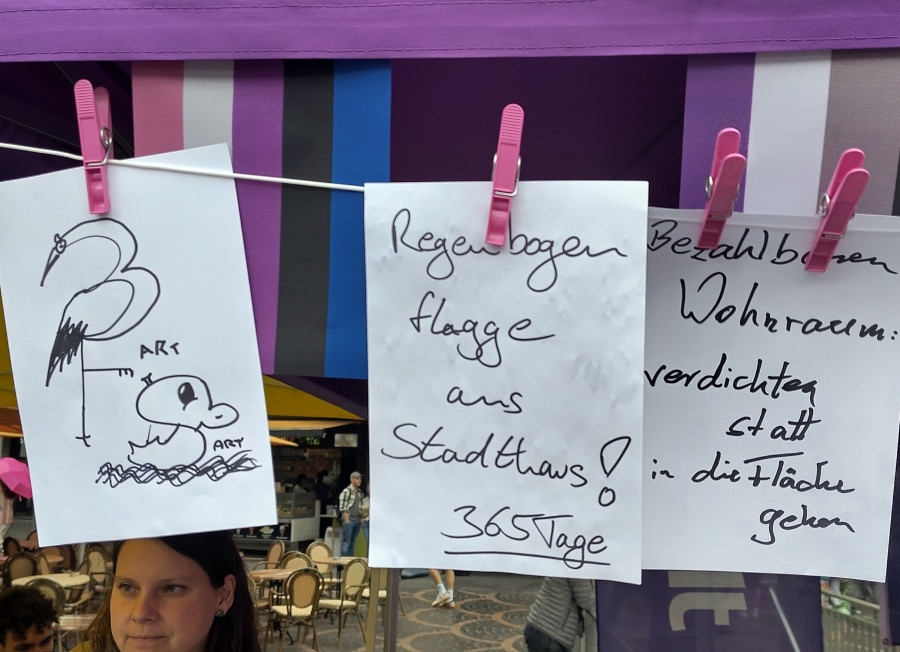 ART
ART
Regenbogen
flagge
ans
Stadthaus!
365 Tage
Bezahlbaren
Wohnraum:
verdichten
statt
in die Fläche
gehen